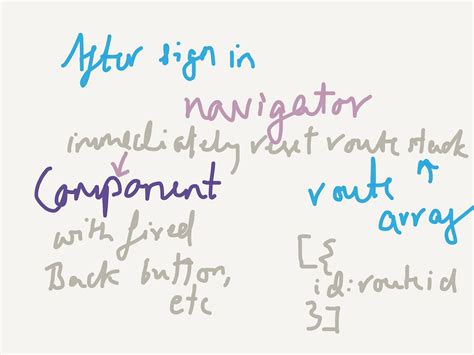 After sign in
navigator
immediately reset route stack
Component
route array
with fired
Back button, etc
[{
id: routeid
}]